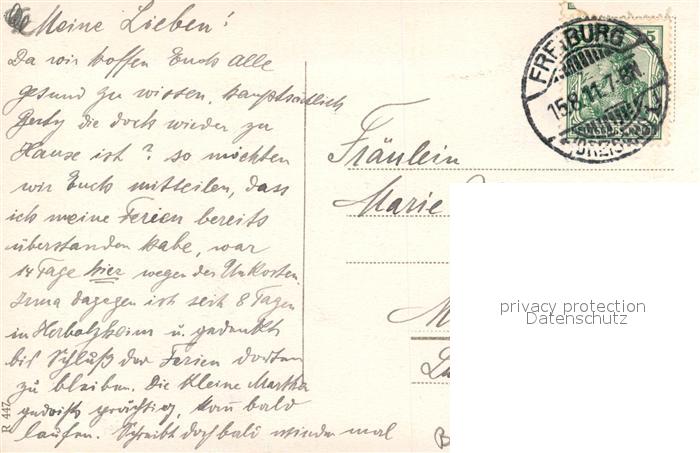 Meine Lieben!
Da wir hoffen Euch alle
gesund zu wissen, hauptsächlich
die doch wieder zu
Hause ist? so möchten
wir Euch mitteilen, dass
ich meine Ferien bereits
überstanden habe, war
14 Tage hier wegen der Unkosten.
Irma dagegen ist seit 8 Tagen
in Herbolzheim u. gedenkt
bis Schluß der Ferien dorten
zu bleiben. Die kleine Martha
gedeiht prächtig, kann bald
laufen. Schreibt doch bald wieder mal
R 447
FREIBURG
15.8.11. 7-8
(BREISGAU)
5
Fräulein
Marie
privacy protection
Datenschutz